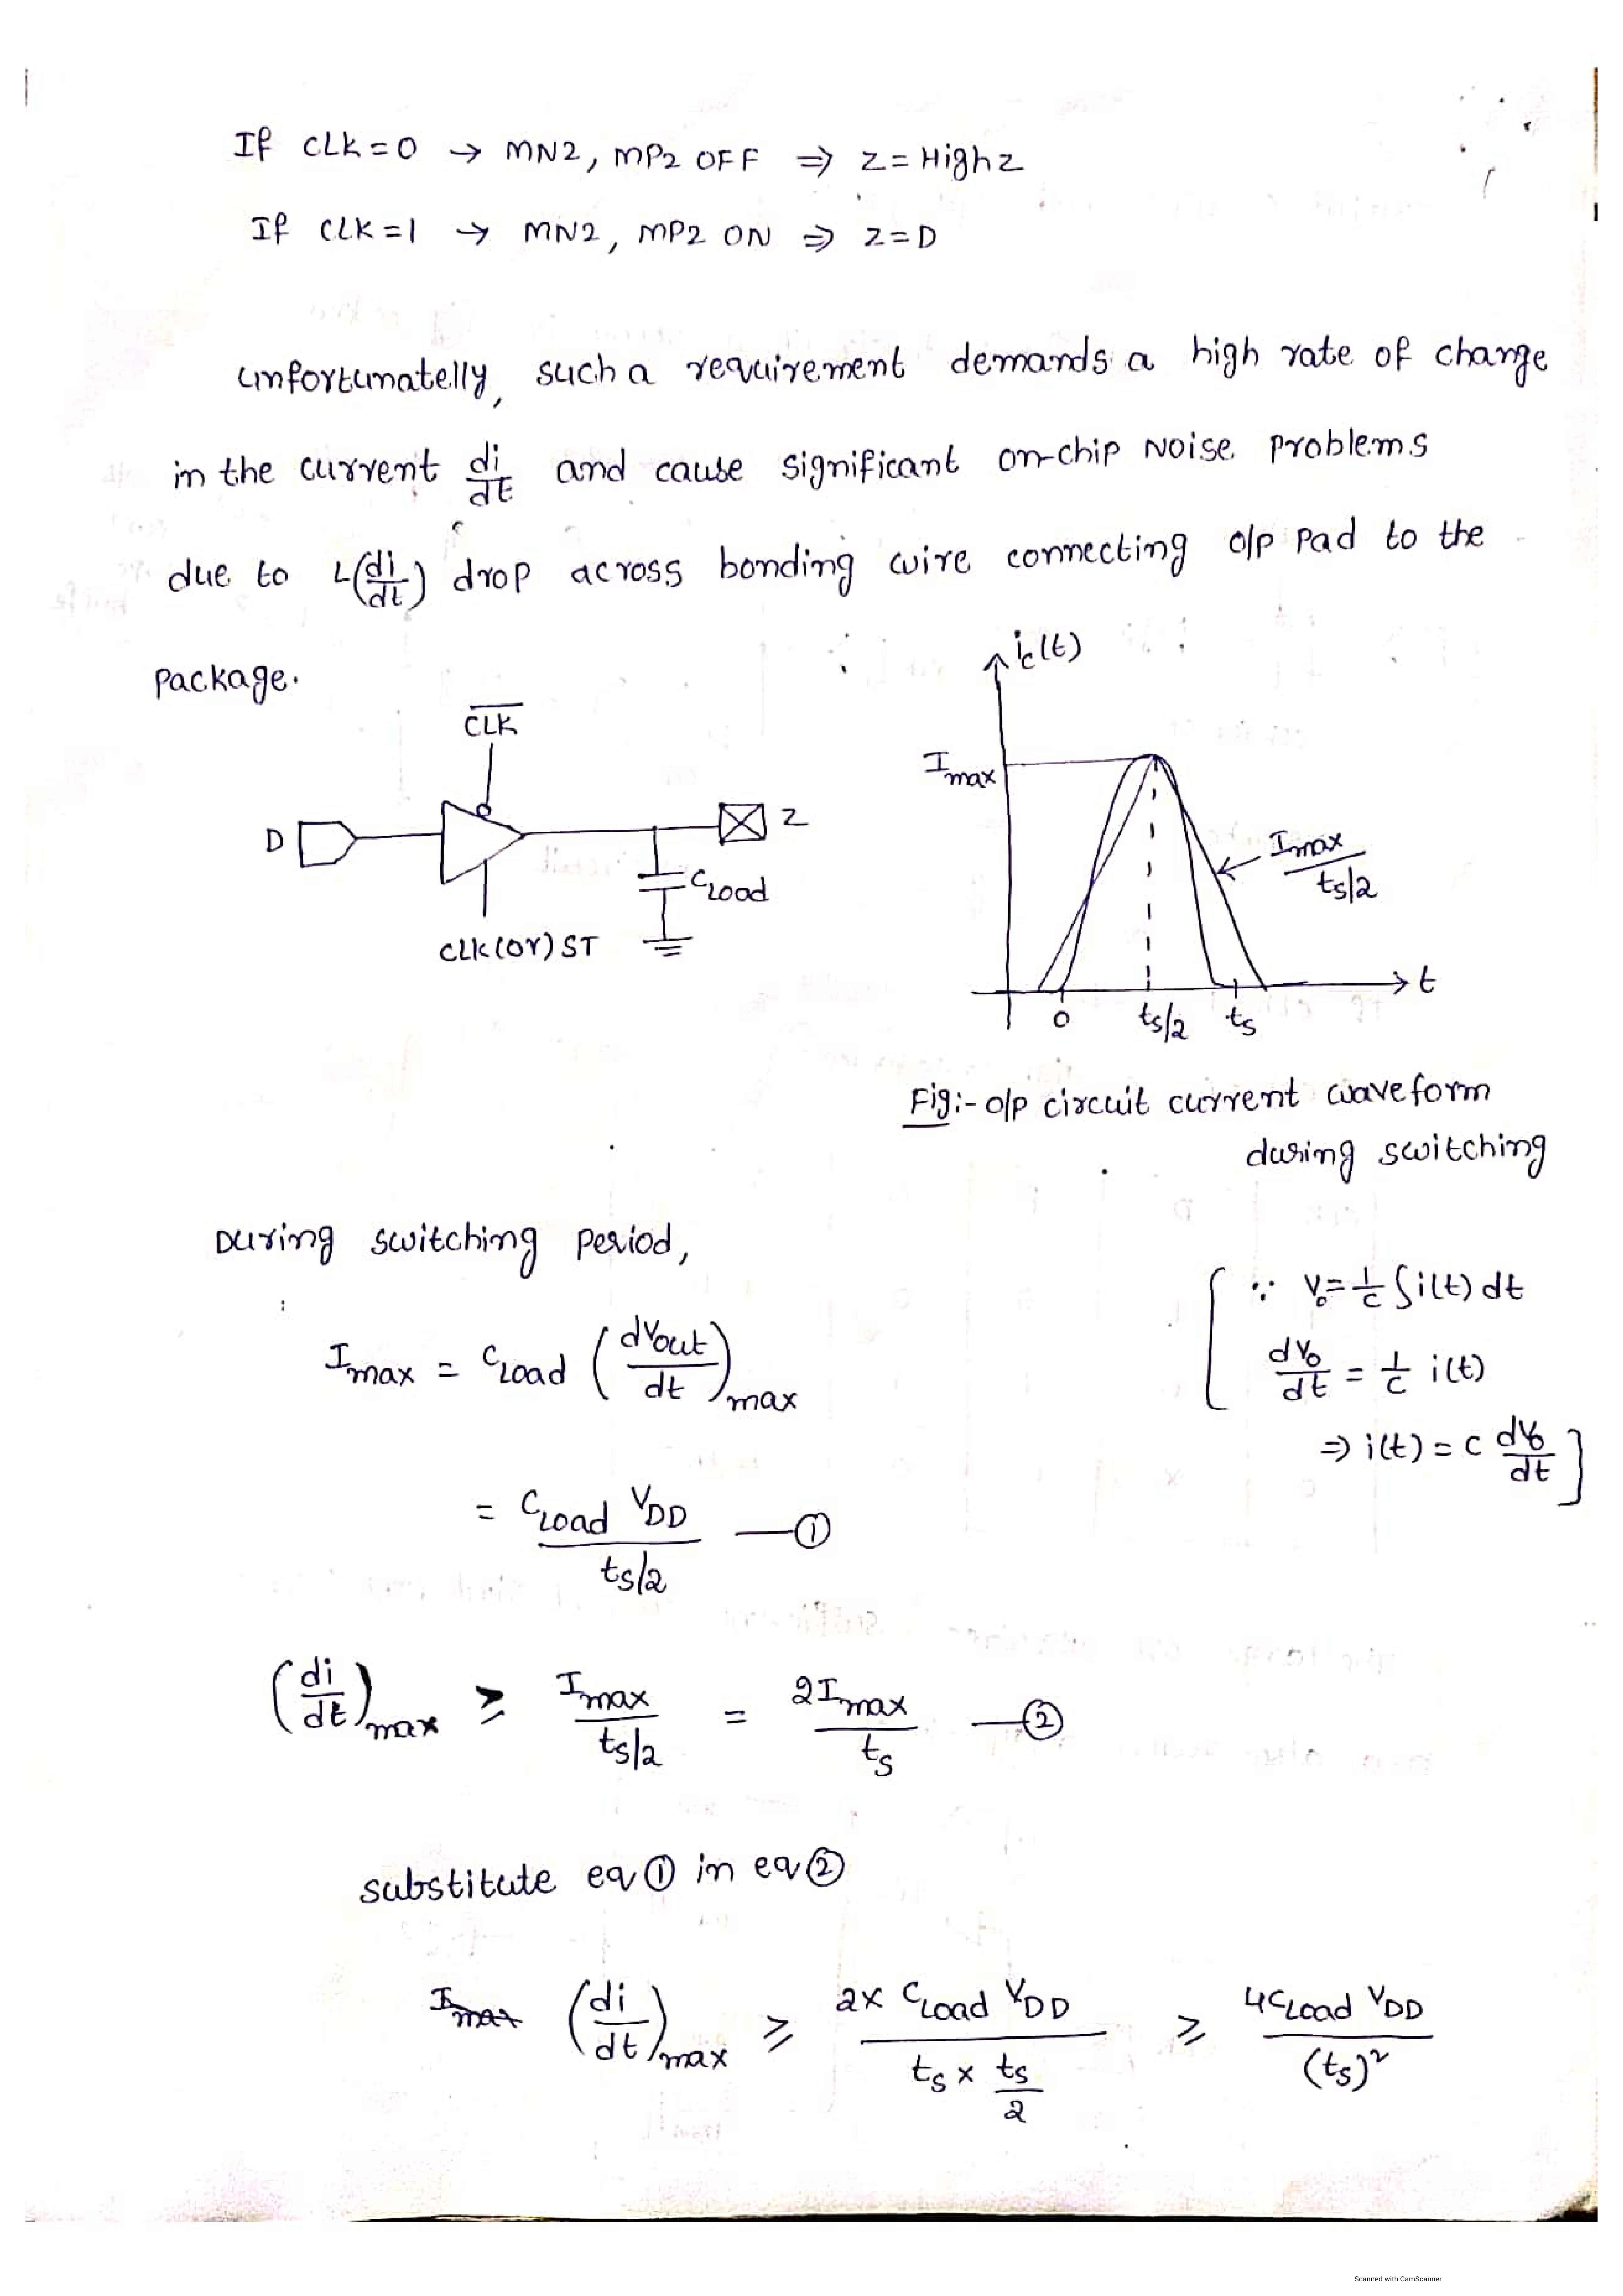 If CLK=0 → MN2, MP2 OFF ⇒ Z = High Z
If CLK=1 → MN2, MP2 ON ⇒ Z=D
unfortunatelly, such a requirement demands a high rate of change
in the current di/dt and cause significant on-chip Noise problems
due to L(di/dt) drop across bonding wire connecting o/p Pad to the
package.
ic(t)
C̅L̅K̅
Imax
D
Z
Imax / ts/2
CLoad
CLK(or) ST
t
0 ts/2 ts
Fig:- o/p circuit current waveform
during switching
During switching Period,
∵ Vo = 1/C ∫i(t) dt
Imax = CLoad (dVout/dt)max
[ dVo/dt = 1/C i(t)
⇒ i(t) = C dVo/dt ]
= CLoad VDD / ts/2 —①
(di/dt)max ≥ Imax / ts/2 = 2Imax / ts —②
substitute eq① in eq②
Imax (di/dt)max ≥ 2x CLoad VDD / ts x ts/2 ≥ 4CLoad VDD / (ts)²
Scanned with CamScanner